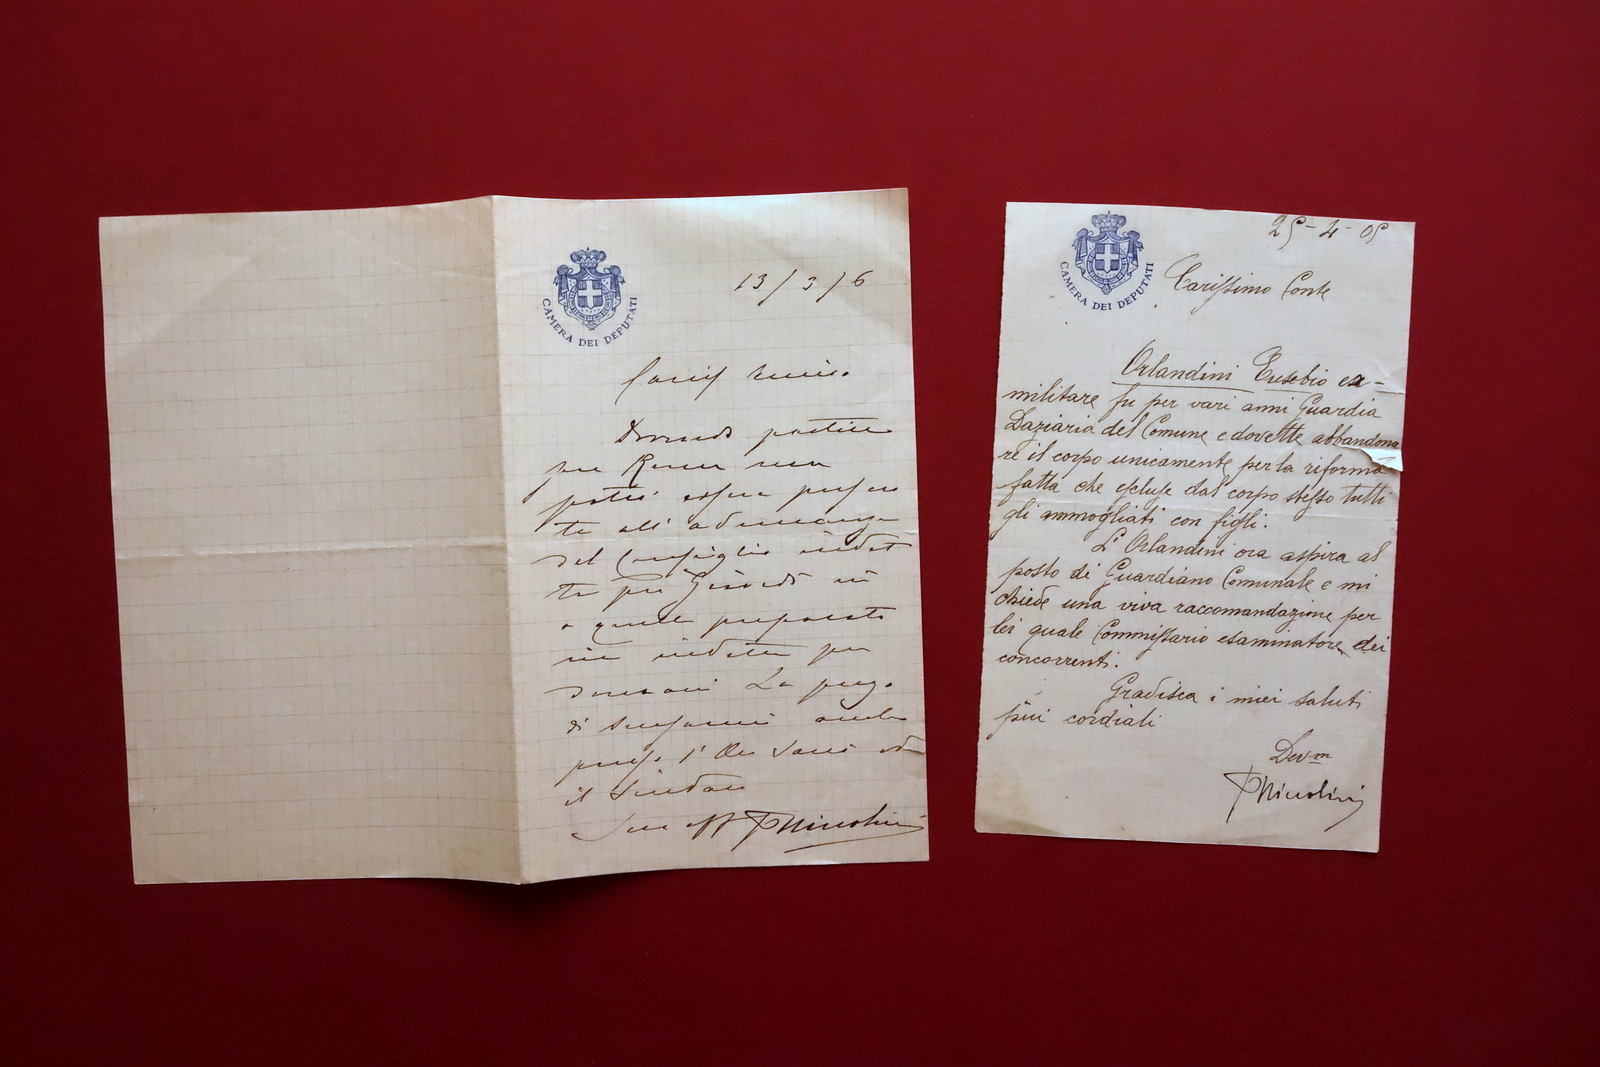 CAMERA DEI DEPUTATI
13/3/6
Dovendo partire
per Roma non
potrò essere presen
te all'adunanza
del Consiglio indet
ta per Giovedì nè
a quella
indetta per
domani La prego
di anche
presso l'On
il Sindaco
Suo aff PNicolini
CAMERA DEI DEPUTATI
25-4-05
Carissimo Conte
Orlandini Eusebio ex-
militare fu per vari anni Guardia
Daziaria del Comune e dovette abbandona
re il corpo unicamente per la riforma
fatta che escluse dal corpo stesso tutti
gli ammogliati con figli.
L'Orlandini ora aspira al
posto di Guardiano Comunale e mi
chiede una viva raccomandazione per
lei quale Commissario esaminatore dei
concorrenti.
Gradisca i miei saluti
più cordiali
Devm
PNicolini